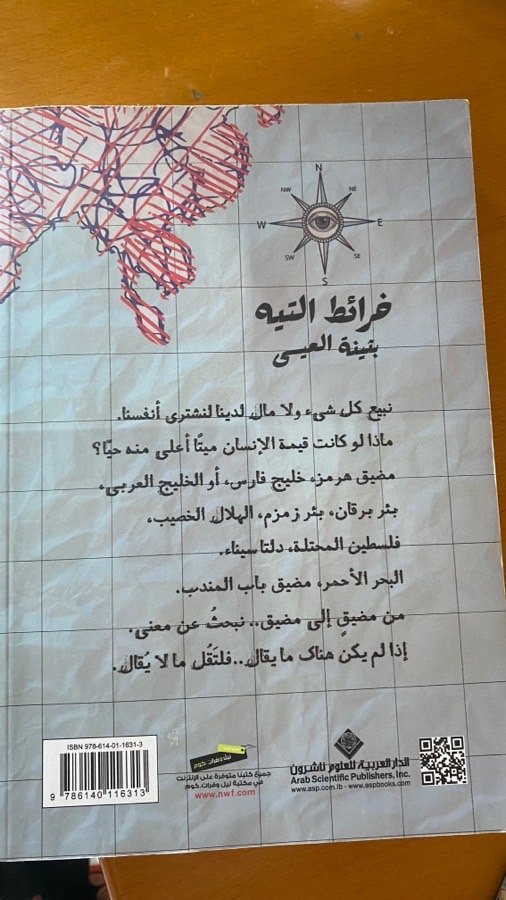 N
NW NE
W E
SW SE
S
خرائط التيه
بثينة العيسى
نبيع كل شيء ولا مال لدينا لنشتري أنفسنا.
ماذا لو كانت قيمة الإنسان ميتًا أعلى منه حيًا؟
مضيق هرمز، خليج فارس، أو الخليج العربي،
بئر برقان، بئر زمزم، الهلال الخصيب،
فلسطين المحتلة، دلتا سيناء.
البحر الأحمر، مضيق باب المندب.
من مضيقٍ إلى مضيق.. نبحثُ عن معنى.
إذا لم يكن هناك ما يقال..فلتَقُل ما لا يُقال.
ISBN 978-614-01-1631-3
9 786140 116313
نيل وفرات.كوم
جميع كتبنا متوفرة على الإنترنت
في مكتبة نيل وفرات.كوم
www.nwf.com
الدار العربية للعلوم ناشرون
Arab Scientific Publishers, Inc.
www.asp.com.lb - www.aspbooks.com